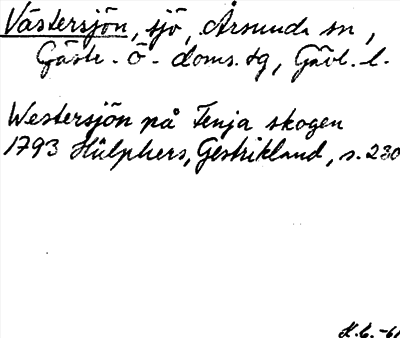 Västersjön, sjö, Årsunda sn,
Gästr. Ö. doms. tg, Gävl. l.
Westersjön på Fenja skogen
1793 Hülphers, Gestrikland, s. 230
H.C. -61